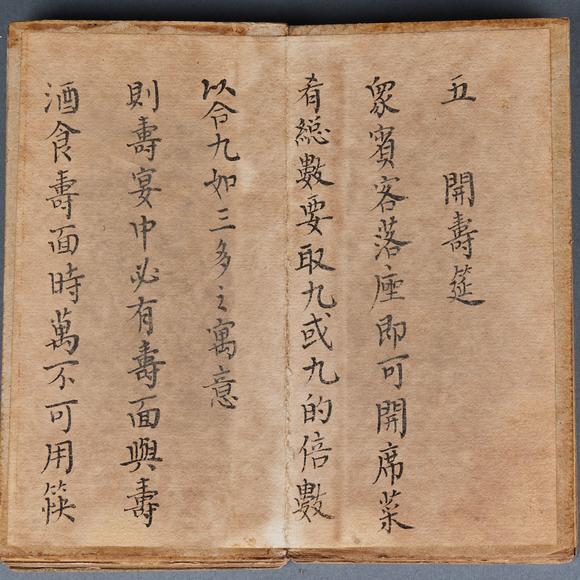 五 開壽筵
衆賓客落座即可開席菜
肴總數要取九或九的倍數
以令九如三多之寓意
則壽宴中必有壽面與壽
酒食壽面時萬不可用筷